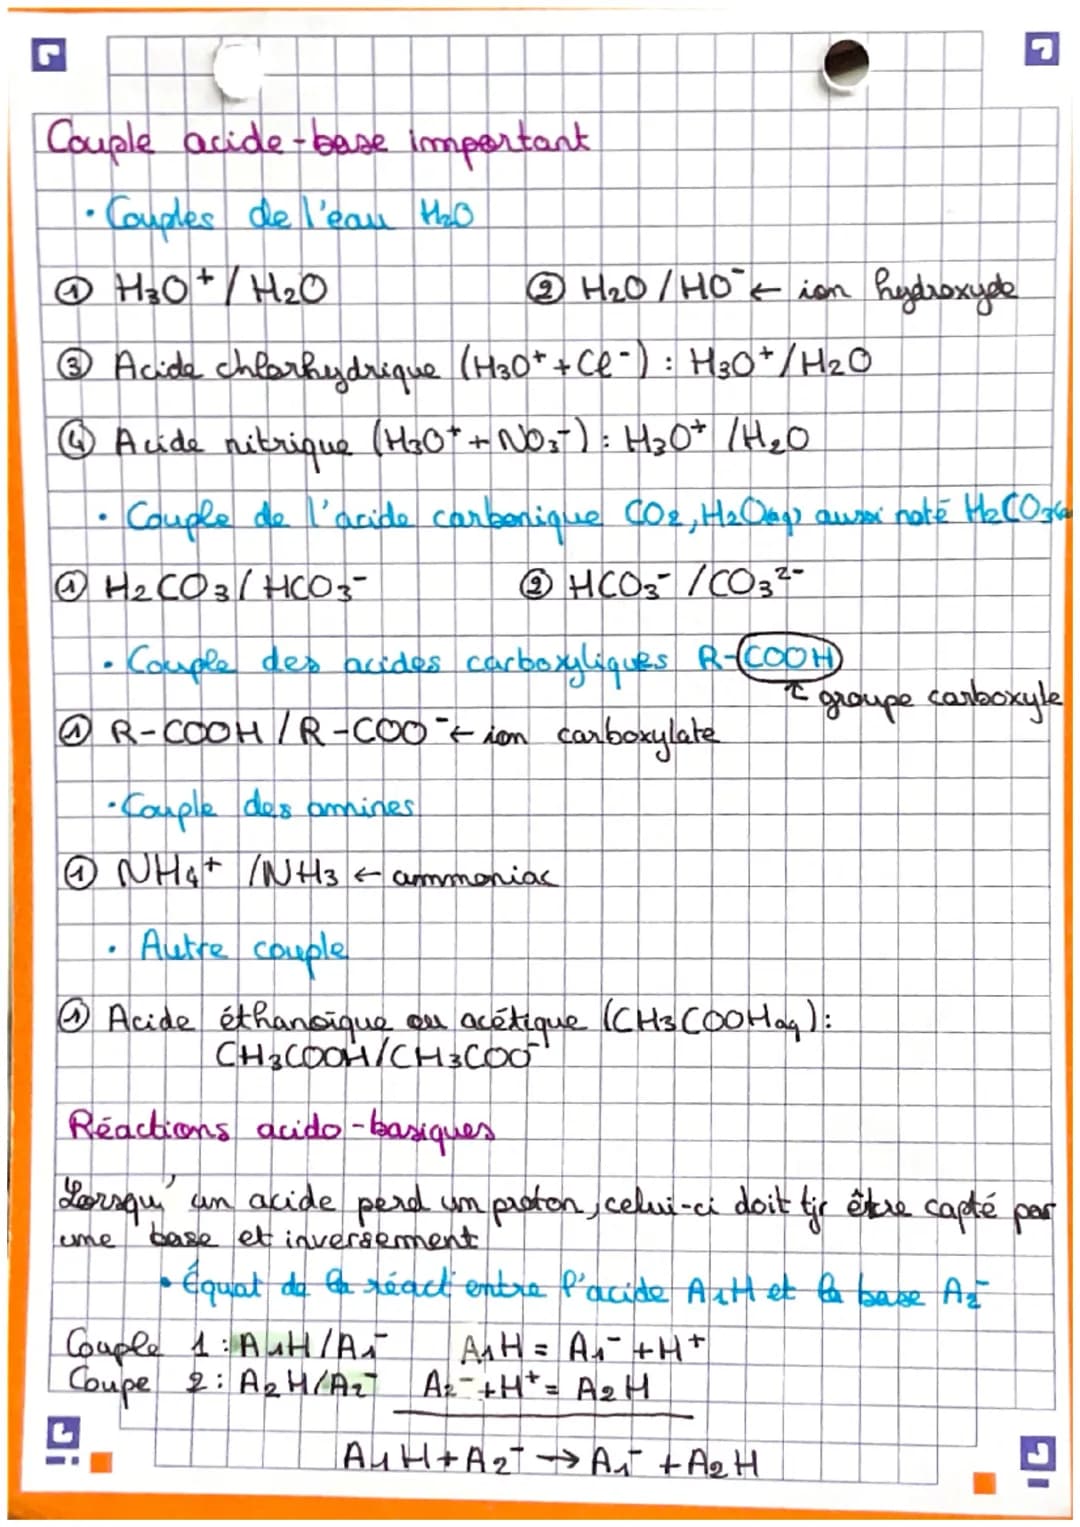 Couple acide-base important
• Couples de l'eau H₂O
① H₃O⁺/H₂O ② H₂O/HO⁻ ← ion hydroxyde
③ Acide chlorhydrique (H₃O⁺+Cl⁻) : H₃O⁺/H₂O
④ Acide nitrique (H₃O⁺+NO₃⁻) : H₃O⁺/H₂O
• Couple de l'acide carbonique CO₂,H₂O(aq) aussi noté H₂CO₃
① H₂CO₃/HCO₃⁻ ② HCO₃⁻/CO₃²⁻
• Couple des acides carboxyliques R-COOH
↑ groupe carboxyle
① R-COOH/R-COO⁻ ← ion carboxylate
• Couple des amines
① NH₄⁺/NH₃ ← ammoniac
• Autre couple
① Acide éthanoïque ou acétique (CH₃COOHaq) :
CH₃COOH/CH₃COO⁻
Réactions acido-basiques
Lorsqu'un acide perd un proton, celui-ci doit tjr être capté par
une base et inversement
• Équat de la réact entre l'acide A₁H et la base A₂⁻
Couple 1 : A₁H/A₁⁻ A₁H = A₁⁻ + H⁺
Coupe 2 : A₂H/A₂⁻ A₂⁻ + H⁺ = A₂H
A₁H + A₂⁻ → A₁⁻ + A₂H